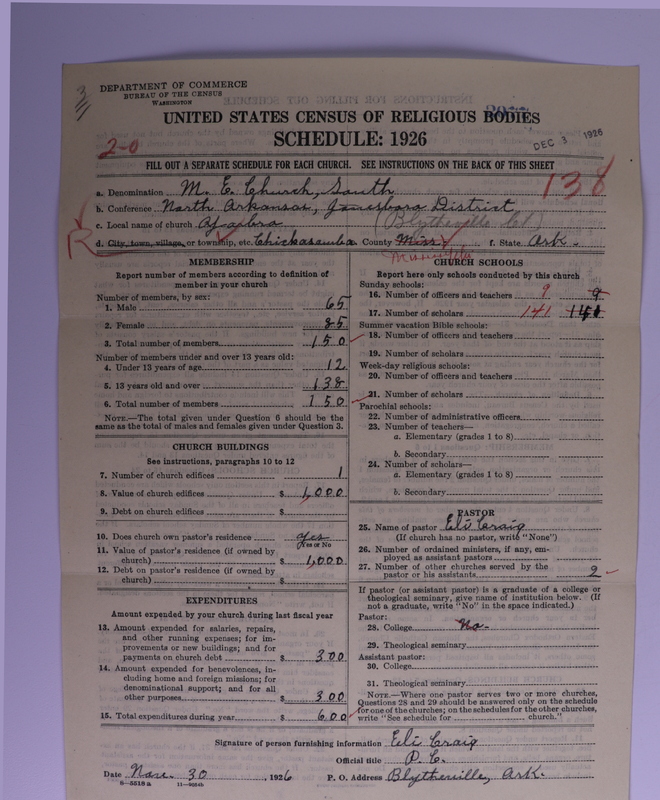 DEPARTMENT OF COMMERCE
BUREAU OF THE CENSUS
WASHINGTON
UNITED STATES CENSUS OF RELIGIOUS BODIES
SCHEDULE: 1926
DEC 3 1926
2-0
138
FILL OUT A SEPARATE SCHEDULE FOR EACH CHURCH. SEE INSTRUCTIONS ON THE BACK OF THIS SHEET
a. Denomination M. E. Church, South
b. Conference North Arkansas, Jonesboro District
c. Local name of church (Blytheville Ct)
d. City, town, village, or township, etc. Chickasawba County Miss. f. State Ark.
Mississippi
R
MEMBERSHIP
Report number of members according to definition of
member in your church
Number of members, by sex:
1. Male 65
2. Female 85
3. Total number of members 150
Number of members under and over 13 years old:
4. Under 13 years of age 12
5. 13 years old and over 138
6. Total number of members 150
NOTE.—The total given under Question 6 should be the
same as the total of males and females given under Question 3.
CHURCH BUILDINGS
See instructions, paragraphs 10 to 12
7. Number of church edifices 1
8. Value of church edifices $ 1,000
9. Debt on church edifices $
10. Does church own pastor's residence yes
Yes or No
11. Value of pastor's residence (if owned by
church) $ 1,000
12. Debt on pastor's residence (if owned by
church) $
EXPENDITURES
Amount expended by your church during last fiscal year
13. Amount expended for salaries, repairs,
and other running expenses; for im-
provements or new buildings; and for
payments on church debt $ 300
14. Amount expended for benevolences, in-
cluding home and foreign missions; for
denominational support; and for all
other purposes $ 300
15. Total expenditures during year $ 600
CHURCH SCHOOLS
Report here only schools conducted by this church
Sunday schools:
16. Number of officers and teachers 9 9
17. Number of scholars 141
Summer vacation Bible schools:
18. Number of officers and teachers
19. Number of scholars
Week-day religious schools:
20. Number of officers and teachers
21. Number of scholars
Parochial schools:
22. Number of administrative officers
23. Number of teachers—
a. Elementary (grades 1 to 8)
b. Secondary
24. Number of scholars—
a. Elementary (grades 1 to 8)
b. Secondary
PASTOR
25. Name of pastor Eli Craig
(If church has no pastor, write "None")
26. Number of ordained ministers, if any, em-
ployed as assistant pastors
27. Number of other churches served by the
pastor or his assistants 2
If pastor (or assistant pastor) is a graduate of a college or
theological seminary, give name of institution below. (If
not a graduate, write "No" in the space indicated.)
Pastor:
28. College No
29. Theological seminary
Assistant pastor:
30. College
31. Theological seminary
NOTE.—Where one pastor serves two or more churches,
Questions 28 and 29 should be answered only on the schedule
for one of the churches; on the schedules for the other churches,
write "See schedule for church."
Signature of person furnishing information Eli Craig
Official title P. C.
Date Nov. 30, 1926 P. O. Address Blytheville, Ark.
8—5518a 11—9084b